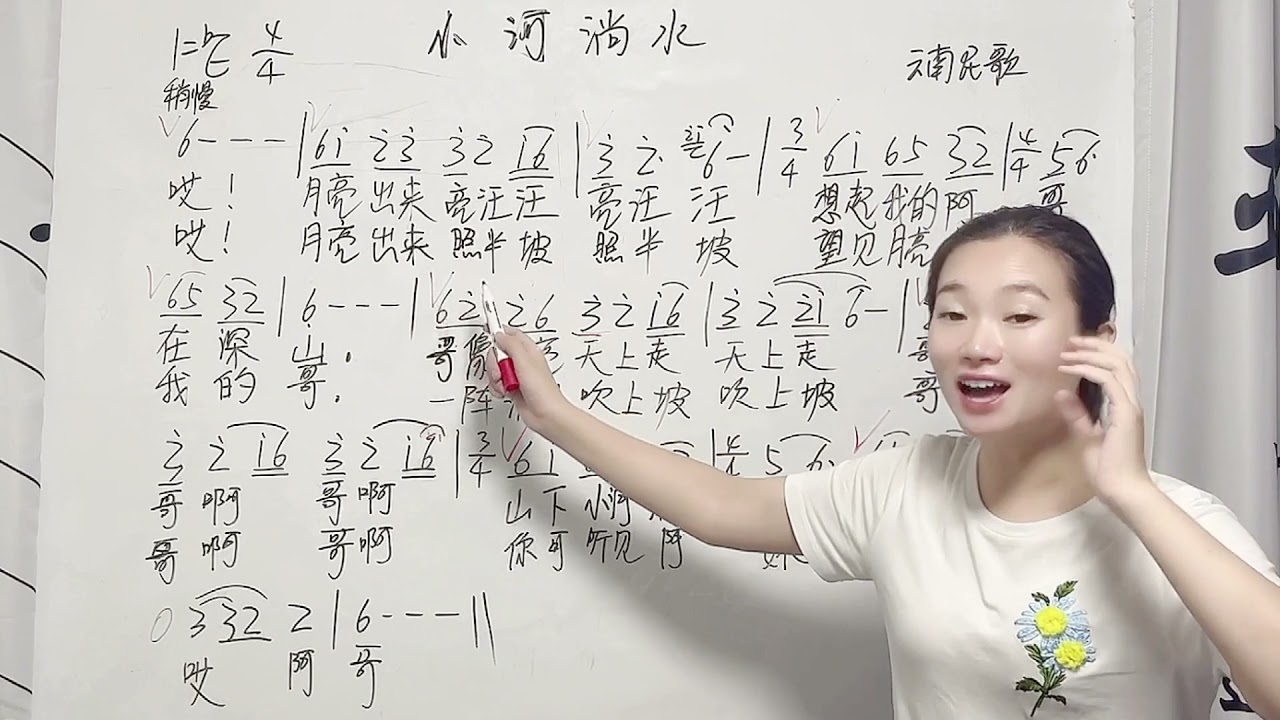 小河淌水
1=♭E 4/4
云南民歌
稍慢
6 - - - | 6i 2̇3̇ 3̇2̇ i6 | 3̇ 2̇ 6 - | 3/4 6i 65 32 | 4/4 56
哎！ 月亮出来亮汪汪 亮汪汪 想起我的阿哥
哎！ 月亮出来照半坡 照半坡 望见月亮
65 32 | 6 - - - | 62̇ 2̇6 3̇2̇ i6 | 3̇ 2̇ 2̇i 6 - |
在深山. 哥像 天上走 天上走 哥
我的哥. 一阵 吹上坡 吹上坡 哥
3̇ 2̇ i6 3̇ 2̇ i6 | 3/4 6i | 4/4 5 6
哥啊 哥啊 山下小河
哥啊 哥啊 你可听见阿
0 3 32 2 | 6 - - - ||
哎 阿哥